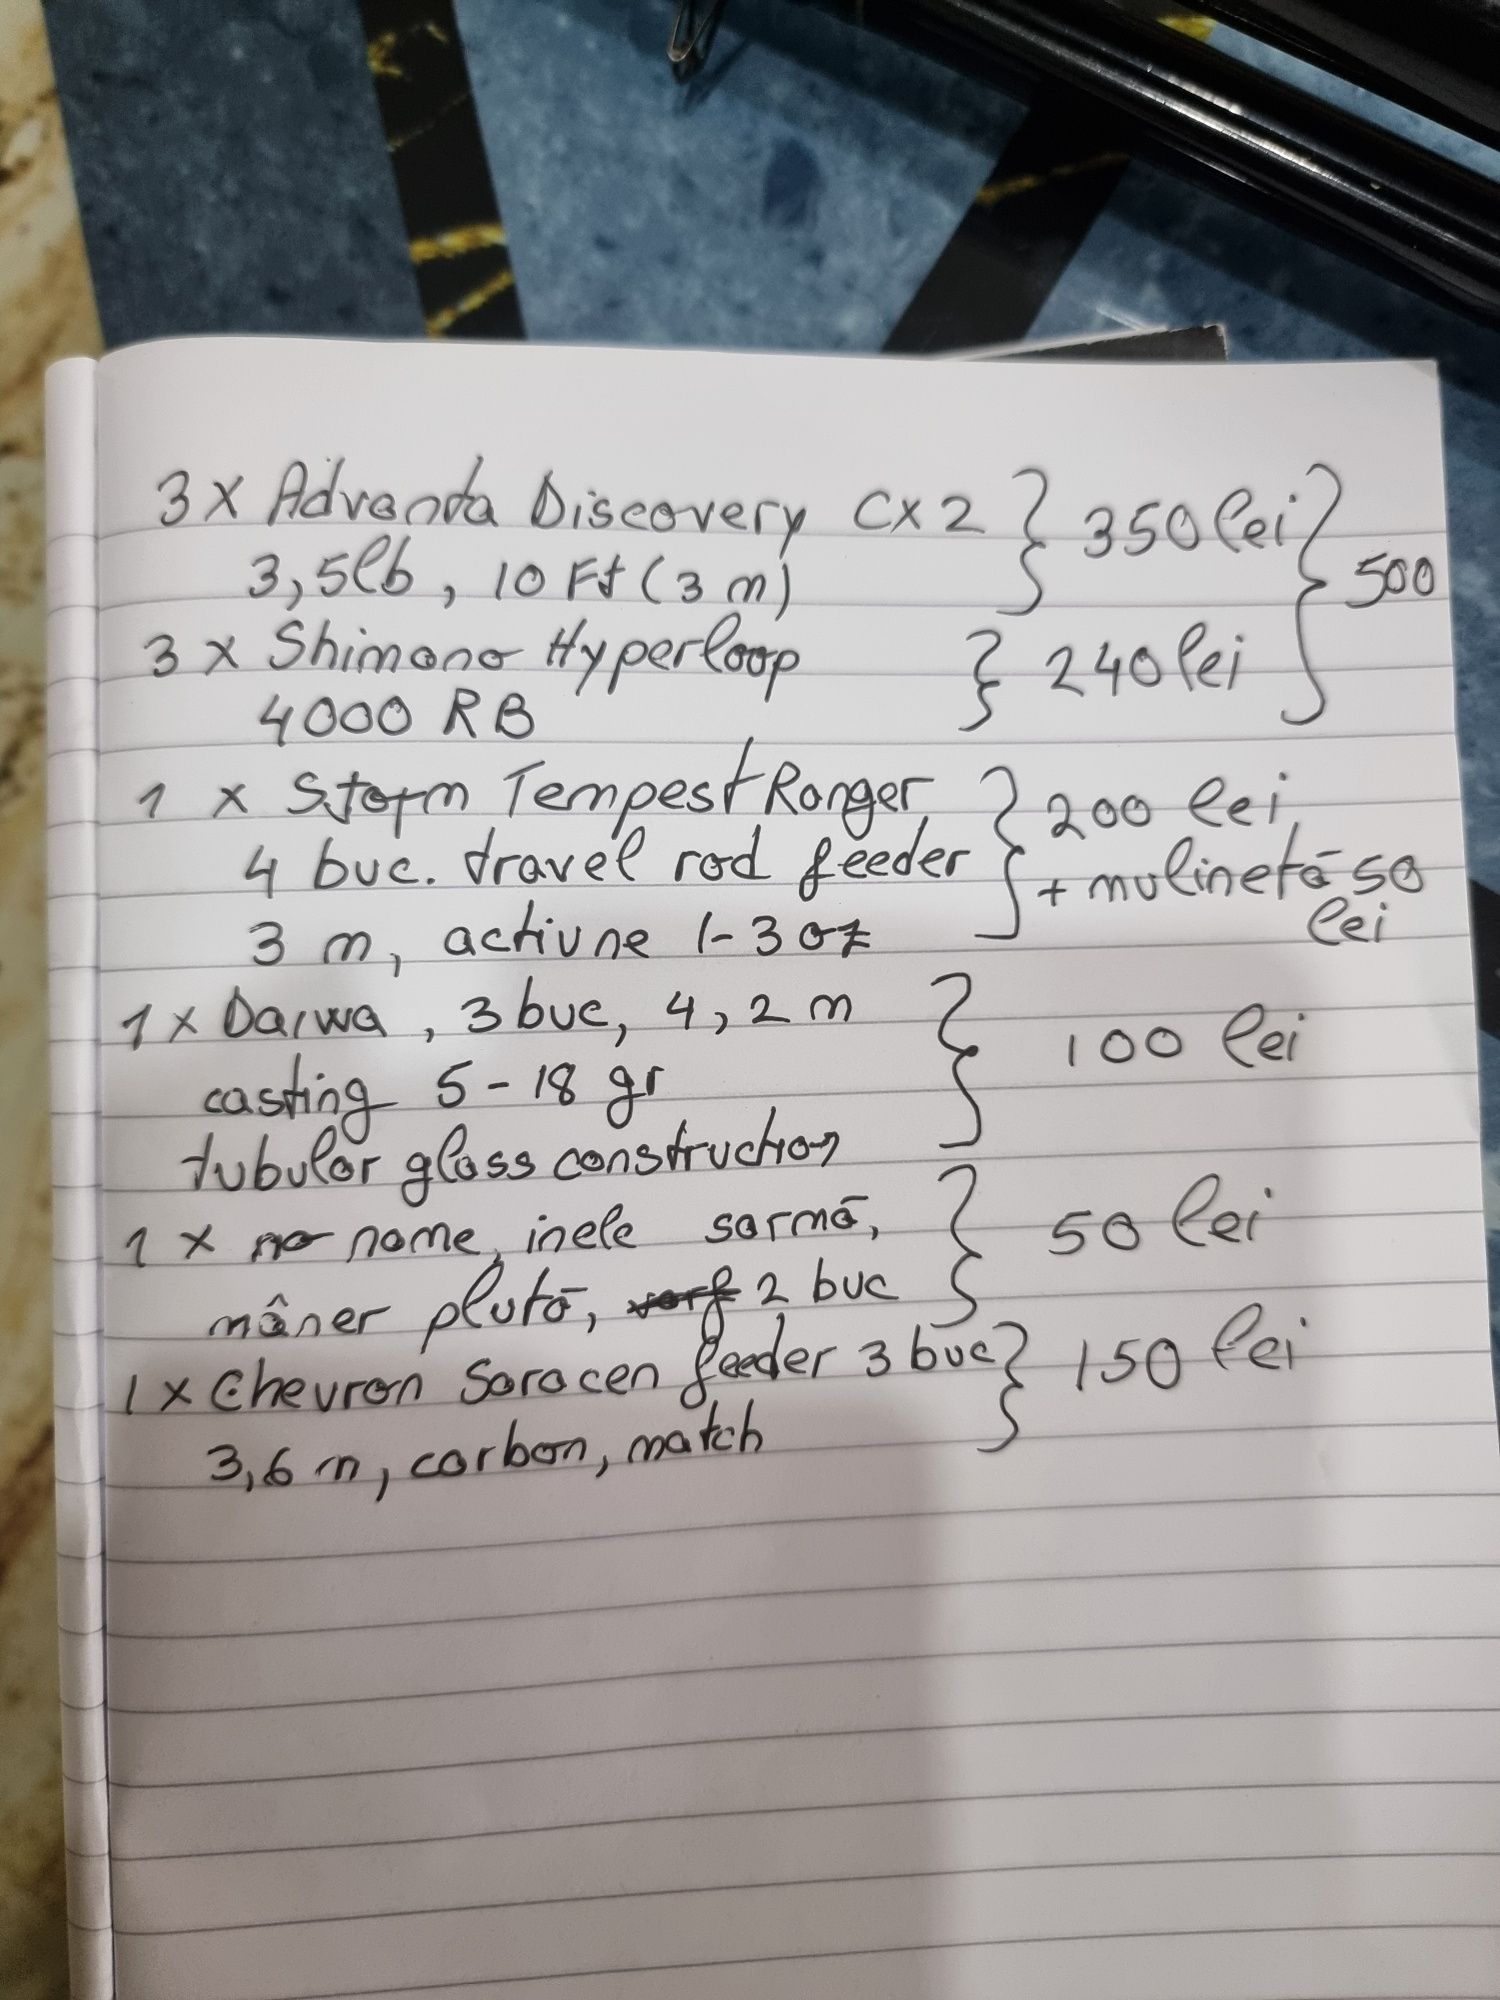 3 x Advanta Discovery CX2 } 350 lei } 500
3,5lb, 10 Ft (3 m)
3 x Shimano Hyperloop } 240 lei
4000 RB
1 x Storm Tempest Ranger } 200 lei
4 buc. travel rod feeder + mulinetă 50 lei
3 m, actiune 1-3 oz
1 x Daiwa, 3 buc, 4,2 m } 100 lei
casting 5-18 gr
tubular glass construction
1 x no name, inele sarmă, } 50 lei
mâner plută, 2 buc
1 x Chevron Saracen feeder 3 buc } 150 lei
3,6 m, carbon, match